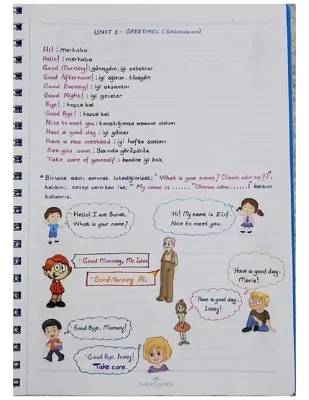 UNIT 1 - GREETINGS (Selamlaşma)
Hi! : merhaba
Hello! : merhaba
Good Morning! : günaydın, iyi sabahlar
Good Afternoon! : iyi öğlenler, tünaydın
Good Evening! : iyi akşamlar
Good Night! : iyi geceler
Bye! : hoşça kal
Good Bye! : hoşça kal
Nice to meet you : tanıştığımıza memnun oldum
Have a good day : iyi günler
Have a nice weekend : iyi hafta sonları
See you soon : Yakında görüşürüz
Take care of yourself : kendine iyi bak
* Birisine adını sormak istediğimizde; "What is your name? (Senin adın ne?)"
kalıbını, cevap verirken ise; "My name is ....... (Benim adım.......)" kalıbını
kullanırız.
Hello! I am Burak.
What is your name?
Hi! My name is Elif.
Nice to meet you.
Good Morning, Mr. John
Good Morning, Ali.
Have a good day,
Marie!
Have a good day,
Lenny!
Good Bye, Mommy!
Good Bye, honey!
Take care.